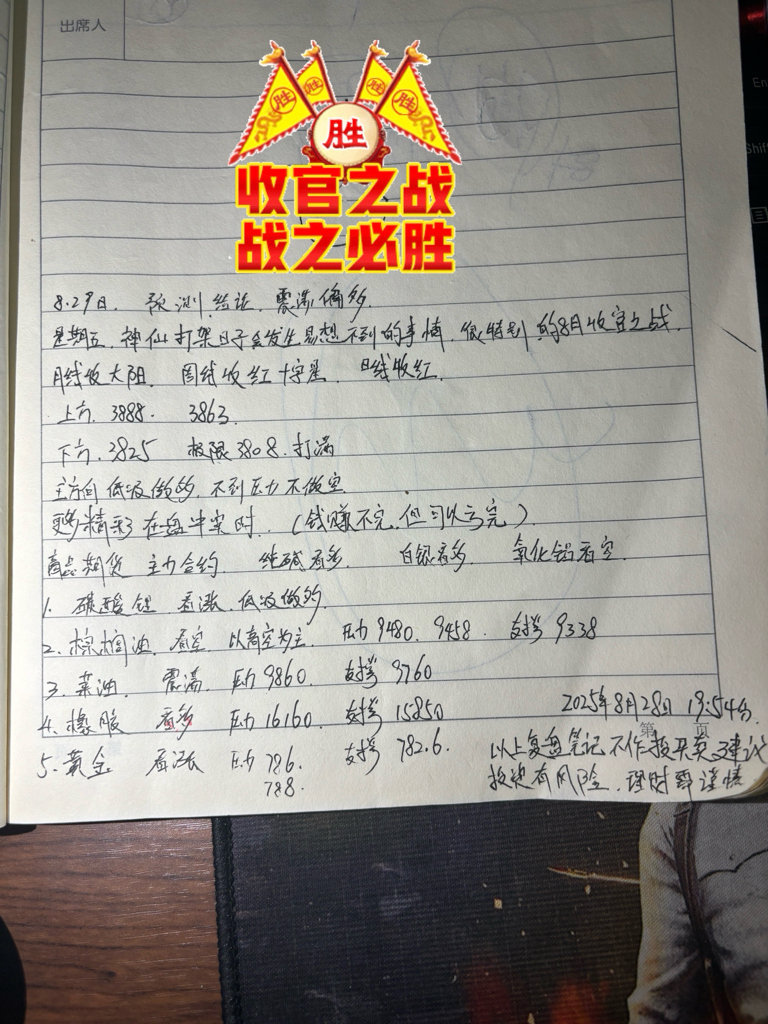 出席人
胜 胜 胜 胜
胜
收官之战
战之必胜
8.29日. 预测结论. 震荡偏多
星期五. 神仙打架日子会发生意想不到的事情. 很特别的8月收官之战.
月线收大阳. 周线收红十字星. 日线收红.
上方. 3888. 3863.
下方. 3825 极限3808. 打满
主方向 低吸做多. 不到压力不做空
更多精彩在盘中实时. (钱赚不完. 但可以亏完).
商品期货 主力合约 纯碱看多 白银看多 氧化铝看空.
1. 碳酸锂 看涨. 低吸做多.
2. 棕榈油. 看空. 以高空为主. 压力9480. 9458. 支撑9338
3. 菜油. 震荡. 压力9860. 支撑9760
4. 橡胶 看多 压力16160. 支撑15850
5. 黄金 看涨 压力786. 支撑782.6.
788.
2025年8月28日 19:54分.
第 页
以上复盘笔记不作投资买卖建议
投资有风险. 理财需谨慎
En
Shift